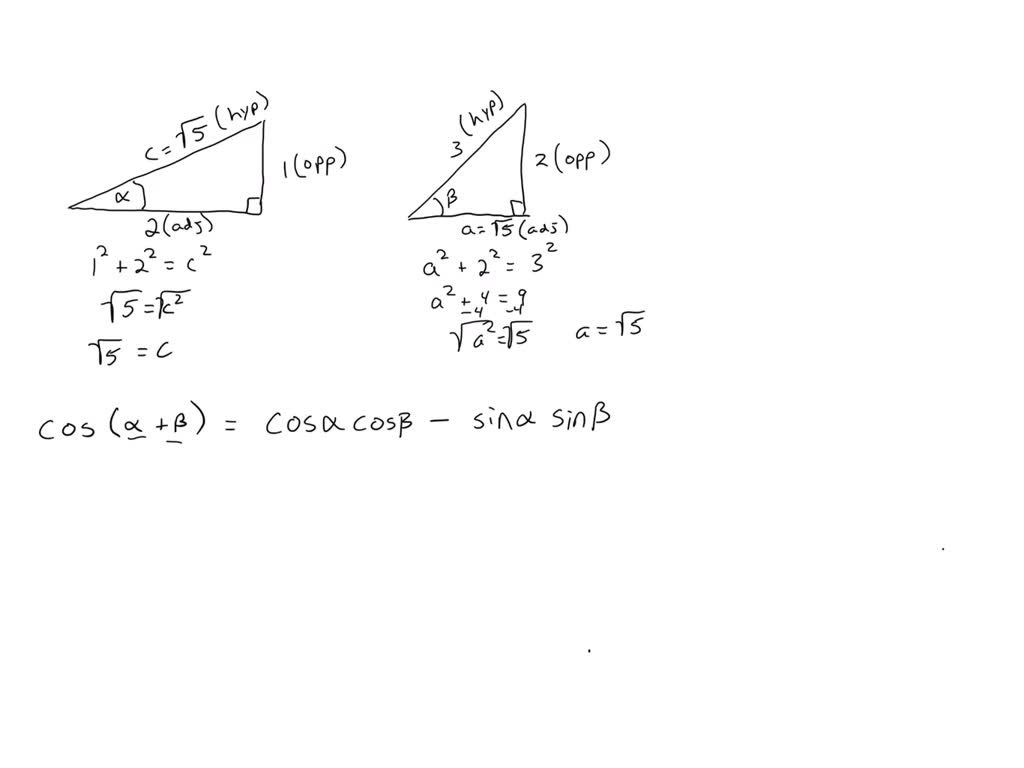 c = √5 (hyp)
1 (opp)
α
2 (adj)
1² + 2² = c²
√5 = √c²
√5 = c
3 (hyp)
2 (opp)
β
a = √5 (adj)
a² + 2² = 3²
a² + 4 = 9
-4 -4
√a² = √5 a = √5
cos (α + β) = cosα cosβ - sinα sinβ